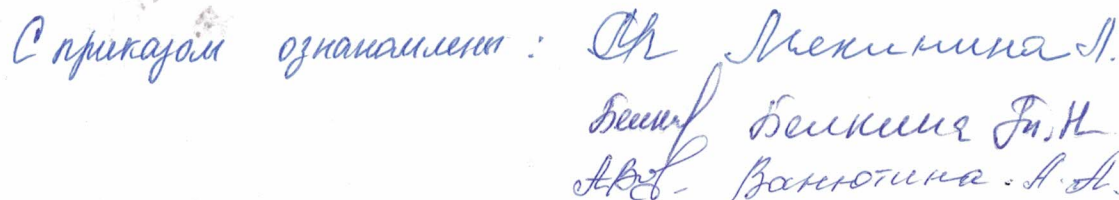 С приказом ознакомлены: Мекинина Л.
Белкина Т.Н
Ванютина А.А.